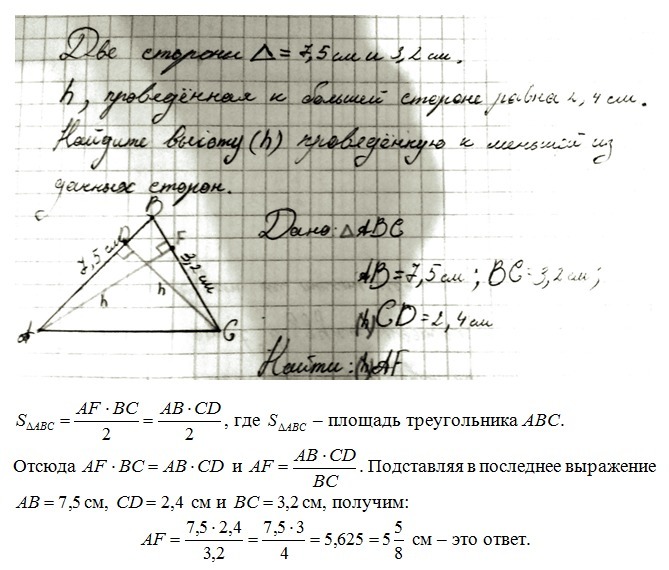 Две стороны △ = 7,5 см и 3,2 см.
h, проведённая к большей стороне равна 2,4 см.
Найдите высоту (h) проведённую к меньшей из
данных сторон.
B
D
F
7,5 см
3,2 см
h
h
A
C
Дано: △ABC
AB = 7,5 см; BC = 3,2 см;
(h) CD = 2,4 см
Найти: (h) AF
S△ABC = AF · BC / 2 = AB · CD / 2, где S△ABC – площадь треугольника ABC.
Отсюда AF · BC = AB · CD и AF = AB · CD / BC. Подставляя в последнее выражение
AB = 7,5 см, CD = 2,4 см и BC = 3,2 см, получим:
AF = 7,5 · 2,4 / 3,2 = 7,5 · 3 / 4 = 5,625 = 5 5/8 см – это ответ.